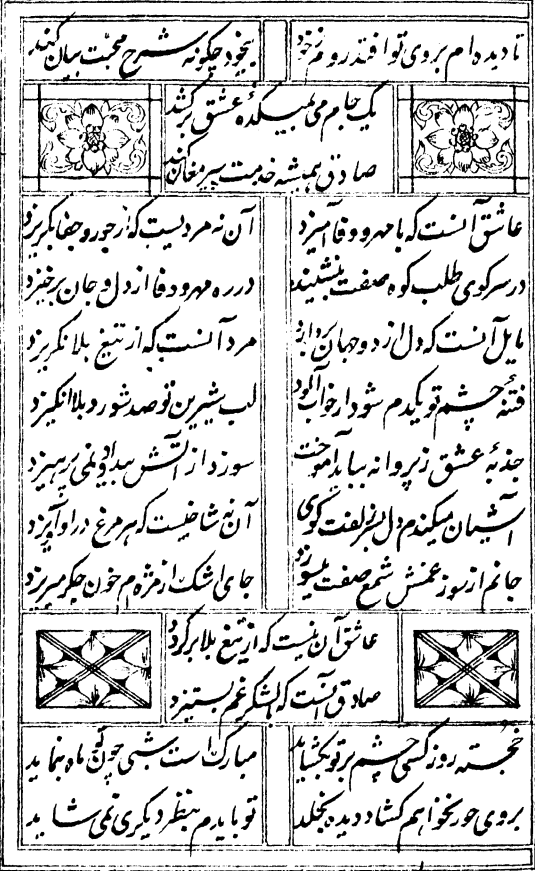 تا دیده‌ام بروی تو افتد روم ز خود
بیخود چگونه شرح محبت بیان کند
یک جام می بمیکدهٔ عشق برکشد
صادق همیشه خدمت پیر مغان کند
عاشق آنست که با مهر و وفا آمیزد
آن نه مردیست که از جور و جفا بگریزد
در سر کوی طلب کوه صفت بنشیند
در ره مهر و وفا از دل و جان برخیزد
مایل آنست که دل از دو جهان بردارد
مرد آنست که از تیغ بلا نگریزد
فتنهٔ چشم تو یکدم شود ار خواب آلود
لب شیرین تو صد شور و بلا انگیزد
جذبهٔ عشق ز پروانه بباید آموخت
سوزد از آتش بیداد و نمی پرهیزد
آشیان میکندم دل بسر زلفت گوی
آن نه شاخیست که هر مرغ در او آویزد
جانم از سوز غمش شمع صفت میسوزد
جای اشک از مژه‌ام خون جگر میریزد
عاشق آن نیست که از تیغ بلا برگردد
صادق آنست که با لشکر غم بستیزد
خجسته روز کسی چشم بر تو بگشاید
مبارک است شبی چون تو ماه بنماید
بروی حور نخواهم گشاد دیده بخلد
تو بایدم بنظر دیگری نمی شاید